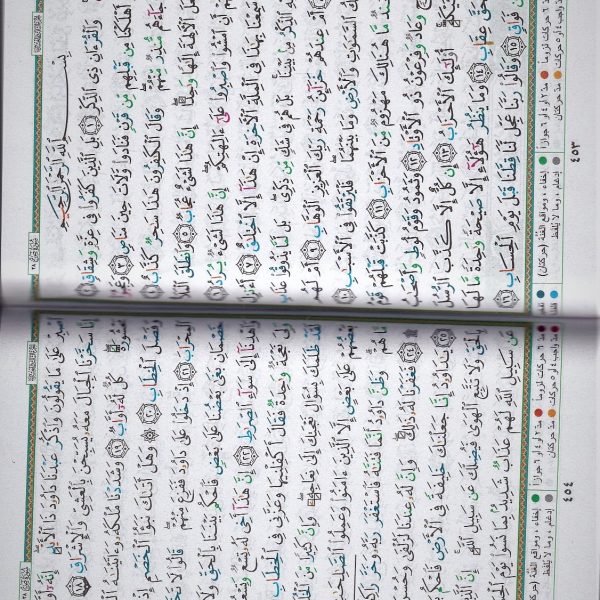 بِسْمِ ٱللَّهِ ٱلرَّحْمَٰنِ ٱلرَّحِيمِ
وَٱلْقُرْءَانِ ذِى ٱلذِّكْرِ ١ بَلِ ٱلَّذِينَ كَفَرُوا۟ فِى عِزَّةٍ وَشِقَاقٍ ٢
أَهْلَكْنَا مِن قَبْلِهِم مِّن قَرْنٍ فَنَادَوا۟ وَّلَاتَ حِينَ مَنَاصٍ ٣
جَآءَهُم مُّنذِرٌ مِّنْهُمْ وَقَالَ ٱلْكَٰفِرُونَ هَٰذَا سَٰحِرٌ كَذَّابٌ ٤
ٱلْءَالِهَةَ إِلَٰهًا وَٰحِدًا إِنَّ هَٰذَا لَشَىْءٌ عُجَابٌ ٥ وَٱنطَلَقَ ٱلْمَلَأُ
أَنِ ٱمْشُوا۟ وَٱصْبِرُوا۟ عَلَىٰٓ ءَالِهَتِكُمْ إِنَّ هَٰذَا لَشَىْءٌ يُرَادُ ٦
سَمِعْنَا بِهَٰذَا فِى ٱلْمِلَّةِ ٱلْءَاخِرَةِ إِنْ هَٰذَآ إِلَّا ٱخْتِلَٰقٌ ٧ أَءُنزِلَ
ٱلذِّكْرُ مِنۢ بَيْنِنَا بَلْ هُمْ فِى شَكٍّ مِّن ذِكْرِى بَل لَّمَّا يَذُوقُوا۟ عَذَابِ
أَمْ عِندَهُمْ خَزَآئِنُ رَحْمَةِ رَبِّكَ ٱلْعَزِيزِ ٱلْوَهَّابِ ٩ أَمْ لَهُم
ٱلسَّمَٰوَٰتِ وَٱلْأَرْضِ وَمَا بَيْنَهُمَا فَلْيَرْتَقُوا۟ فِى ٱلْأَسْبَٰبِ ١٠
جُندٌ مَّا هُنَالِكَ مَهْزُومٌ مِّنَ ٱلْأَحْزَابِ ١١ كَذَّبَتْ قَبْلَهُمْ قَوْمُ
وَعَادٌ وَفِرْعَوْنُ ذُو ٱلْأَوْتَادِ ١٢ وَثَمُودُ وَقَوْمُ لُوطٍ وَأَصْحَٰبُ
أُو۟لَٰٓئِكَ ٱلْأَحْزَابُ ١٣ إِن كُلٌّ إِلَّا كَذَّبَ ٱلرُّسُلَ
فَحَقَّ عِقَابِ ١٤ وَمَا يَنظُرُ هَٰٓؤُلَآءِ إِلَّا صَيْحَةً وَٰحِدَةً مَّا لَهَا
مِن فَوَاقٍ ١٥ وَقَالُوا۟ رَبَّنَا عَجِّل لَّنَا قِطَّنَا قَبْلَ يَوْمِ ٱلْحِسَابِ ١٦
٤٥٣
ٱصْبِرْ عَلَىٰ مَا يَقُولُونَ وَٱذْكُرْ عَبْدَنَا دَاوُۥدَ ذَا ٱلْأَيْدِ إِنَّهُۥٓ
إِنَّا سَخَّرْنَا ٱلْجِبَالَ مَعَهُۥ يُسَبِّحْنَ بِٱلْعَشِىِّ وَٱلْإِشْرَاقِ ١٨
مَحْشُورَةً كُلٌّ لَّهُۥٓ أَوَّابٌ ١٩ وَشَدَدْنَا مُلْكَهُۥ وَءَاتَيْنَٰهُ
وَفَصْلَ ٱلْخِطَابِ ٢٠ وَهَلْ أَتَىٰكَ نَبَؤُا۟ ٱلْخَصْمِ إِذْ
ٱلْمِحْرَابَ ٢١ إِذْ دَخَلُوا۟ عَلَىٰ دَاوُۥدَ فَفَزِعَ مِنْهُمْ قَالُوا۟ لَا تَخَفْ
خَصْمَانِ بَغَىٰ بَعْضُنَا عَلَىٰ بَعْضٍ فَٱحْكُم بَيْنَنَا بِٱلْحَقِّ وَلَا
وَٱهْدِنَآ إِلَىٰ سَوَآءِ ٱلصِّرَٰطِ ٢٢ إِنَّ هَٰذَآ أَخِى لَهُۥ تِسْعٌ
وَلِىَ نَعْجَةٌ وَٰحِدَةٌ فَقَالَ أَكْفِلْنِيهَا وَعَزَّنِى فِى ٱلْخِطَابِ
لَقَدْ ظَلَمَكَ بِسُؤَالِ نَعْجَتِكَ إِلَىٰ نِعَاجِهِۦ وَإِنَّ كَثِيرًا مِّنَ
بَعْضُهُمْ عَلَىٰ بَعْضٍ إِلَّا ٱلَّذِينَ ءَامَنُوا۟ وَعَمِلُوا۟ ٱلصَّٰلِحَٰتِ
مَّا هُمْ وَظَنَّ دَاوُۥدُ أَنَّمَا فَتَنَّٰهُ فَٱسْتَغْفَرَ رَبَّهُۥ وَخَرَّ رَاكِعًا
فَغَفَرْنَا لَهُۥ ذَٰلِكَ وَإِنَّ لَهُۥ عِندَنَا لَزُلْفَىٰ وَحُسْنَ
يَٰدَاوُۥدُ إِنَّا جَعَلْنَٰكَ خَلِيفَةً فِى ٱلْأَرْضِ فَٱحْكُم
بِٱلْحَقِّ وَلَا تَتَّبِعِ ٱلْهَوَىٰ فَيُضِلَّكَ عَن سَبِيلِ ٱللَّهِ إِنَّ
عَن سَبِيلِ ٱللَّهِ لَهُمْ عَذَابٌ شَدِيدٌۢ بِمَا نَسُوا۟ يَوْمَ ٱلْحِسَابِ
٤٥٤